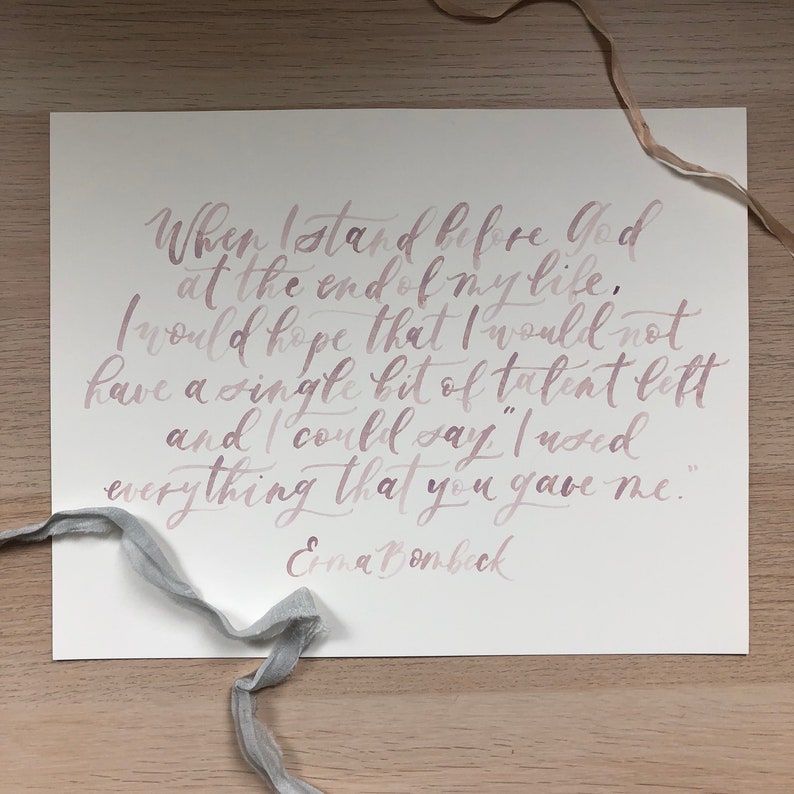 When I stand before God
at the end of my life,
I would hope that I would not
have a single bit of talent left
and I could say, "I used
everything that you gave me."
Erma Bombeck